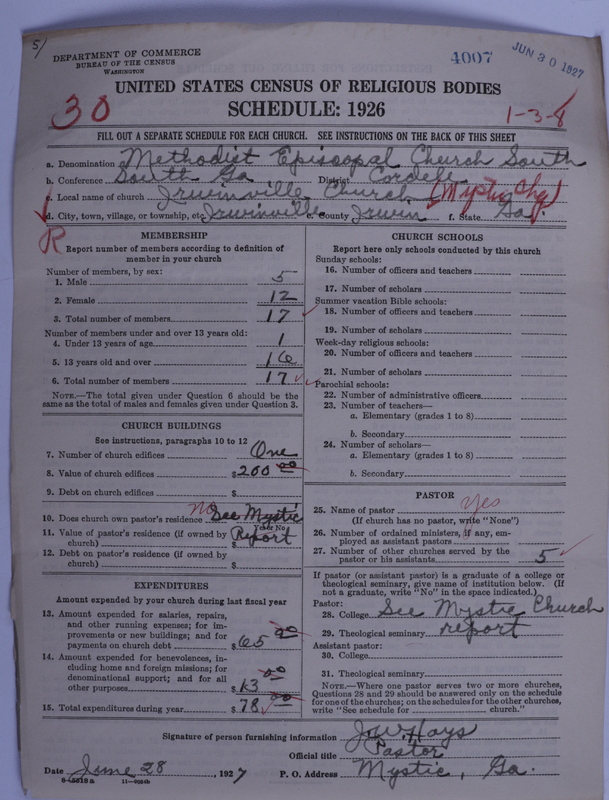 5/
DEPARTMENT OF COMMERCE
BUREAU OF THE CENSUS
WASHINGTON
4007
JUN 30 1927
UNITED STATES CENSUS OF RELIGIOUS BODIES
30
SCHEDULE: 1926
1-3-8
FILL OUT A SEPARATE SCHEDULE FOR EACH CHURCH. SEE INSTRUCTIONS ON THE BACK OF THIS SHEET
a. Denomination Methodist Episcopal Church South
b. Conference South Ga District Cordele
c. Local name of church Irwinville Church (Mystic Chg)
d. City, town, village, or township, etc. Irwinville e. County Irwin f. State Ga.
R
MEMBERSHIP
Report number of members according to definition of member in your church
Number of members, by sex:
1. Male 5
2. Female 12
3. Total number of members 17
Number of members under and over 13 years old:
4. Under 13 years of age 1
5. 13 years old and over 16
6. Total number of members 17
NOTE.—The total given under Question 6 should be the same as the total of males and females given under Question 3.
CHURCH BUILDINGS
See instructions, paragraphs 10 to 12
7. Number of church edifices One
8. Value of church edifices $200 00
9. Debt on church edifices $
10. Does church own pastor's residence no See Mystic
Yes or No
11. Value of pastor's residence (if owned by church) $ Report
12. Debt on pastor's residence (if owned by church) $
EXPENDITURES
Amount expended by your church during last fiscal year
13. Amount expended for salaries, repairs, and other running expenses; for improvements or new buildings; and for payments on church debt $65 00
14. Amount expended for benevolences, including home and foreign missions; for denominational support; and for all other purposes $13 00
15. Total expenditures during year $78 00
CHURCH SCHOOLS
Report here only schools conducted by this church
Sunday schools:
16. Number of officers and teachers
17. Number of scholars
Summer vacation Bible schools:
18. Number of officers and teachers
19. Number of scholars
Week-day religious schools:
20. Number of officers and teachers
21. Number of scholars
Parochial schools:
22. Number of administrative officers
23. Number of teachers—
a. Elementary (grades 1 to 8)
b. Secondary
24. Number of scholars—
a. Elementary (grades 1 to 8)
b. Secondary
PASTOR
25. Name of pastor yes
(If church has no pastor, write "None")
26. Number of ordained ministers, if any, employed as assistant pastors
27. Number of other churches served by the pastor or his assistants 5
If pastor (or assistant pastor) is a graduate of a college or theological seminary, give name of institution below. (If not a graduate, write "No" in the space indicated.)
Pastor:
28. College See Mystic Church
29. Theological seminary report
Assistant pastor:
30. College
31. Theological seminary
NOTE.—Where one pastor serves two or more churches, Questions 28 and 29 should be answered only on the schedule for one of the churches; on the schedules for the other churches, write "See schedule for church."
Signature of person furnishing information J. W. Hays
Official title Pastor
Date June 28, 1927 P. O. Address Mystic, Ga.